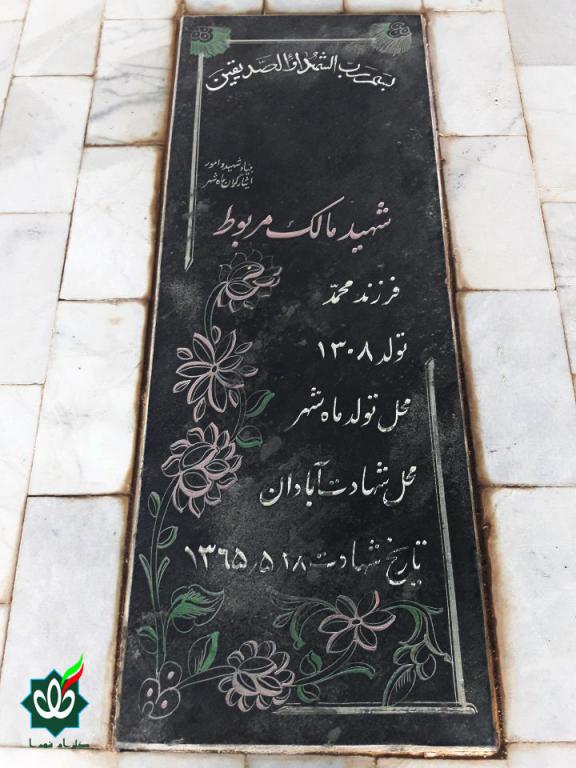 بنام رب الشهداء والصدیقین
بنیاد شهید و امور
ایثارگران ماهشهر
شهید مالک مربوط
فرزند محمد
تولد ۱۳۰۸
محل تولد ماه شهر
محل شهادت آبادان
تاریخ شهادت ۱۳۶۵٫۵٫۲۸
گلزار شهدا